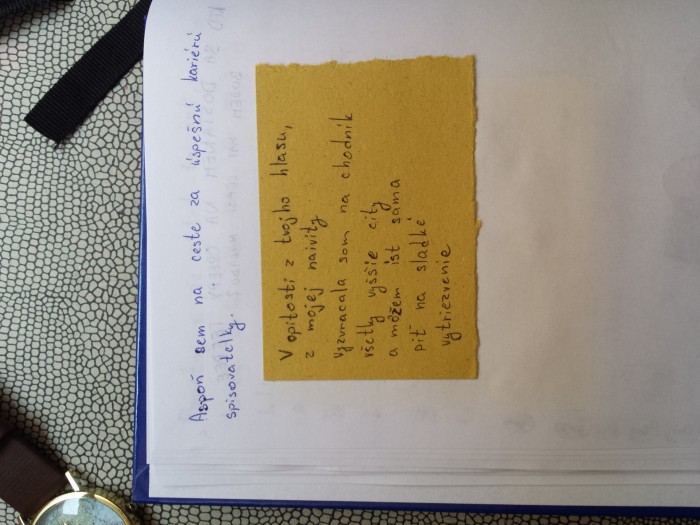 Aspoň sem na ceste za úspešnú kariérú
spisovatelky.
V opitosti z tvojho hlasu,
z mojej naivity
vyzvracala som na chodník
všetky vyššie city
a môžem ísť sama
piť na sladké
vytriezvenie